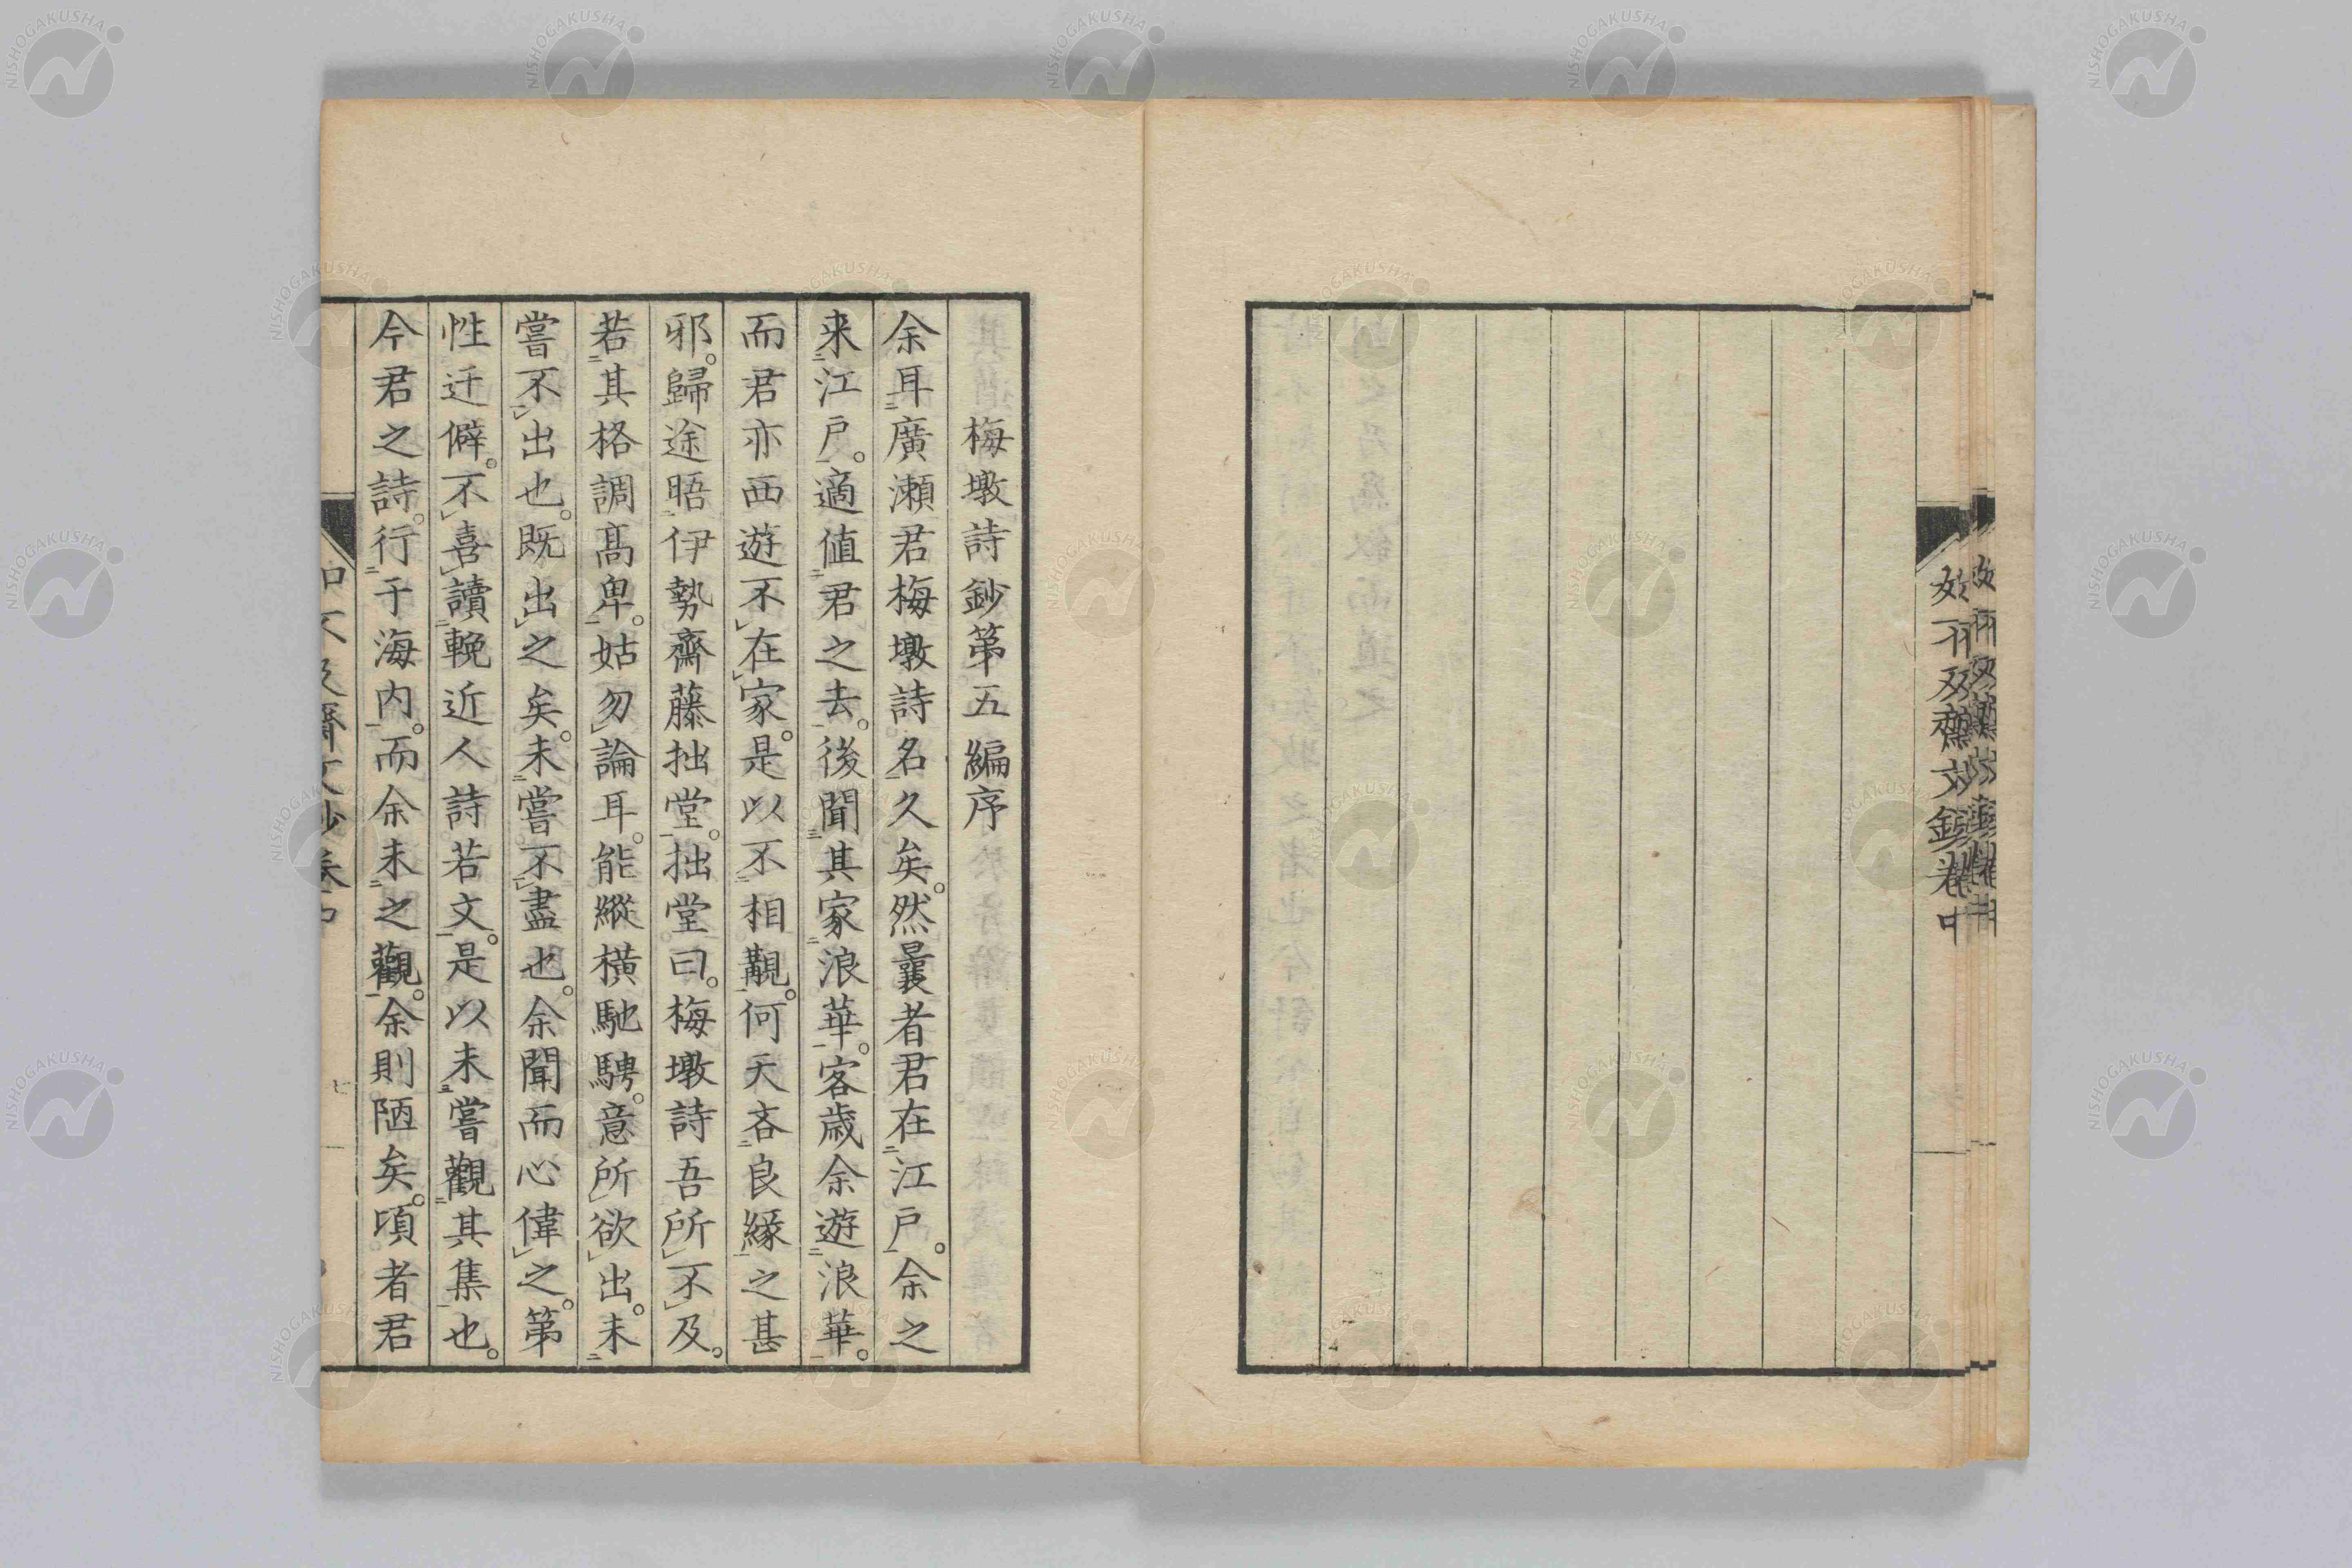 梅墩詩鈔第五編序
余耳廣瀬君梅墩詩名久矣。然曩者君在江戸。余之
来江戸。適値君之去。後聞其家浪華。客歳余遊浪華。
而君亦西遊不在家。是以不相覯。何天吝良縁之甚
邪。歸途晤伊勢齋藤拙堂。拙堂曰。梅墩詩吾所不及。
若其格調髙卑。姑勿論耳。能縱横馳騁。意所欲出。未
嘗不出也。既出之矣。未嘗不盡也。余聞而心偉之。第
性迂僻。不喜讀輓近人詩若文。是以未嘗觀其集也。
今君之詩。行于海内。而余未之觀。余則陋矣。頃者君
NISHOGAKUSHA